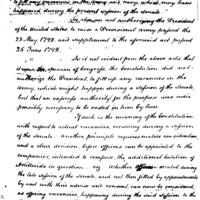 to fill any vacancies in the army and navy, which may have
happened during the recess of the Senate.
In the same act authorizing the President
of the United States to raise a Provisional army passed
the 28 May 1798. and supplement to the aforesaid act passed
25 June 1798.
Is it not evident from the above acts, that
in the opinion of Congress, the Constitution did not
authorize the President, to fill up any vacancies in the
army, which might happen during a session of the Senate,
but that an express authority for the purpose was indis-
pensibly necessary to be vested in him by law.
If such is the meaning of the Constitution
with respect to actual vacancies, occurring during a session
of the Senate. Another principle requires mature consideration
and a clear decision, before officers can be appointed to the
companies, intended to compose, the additional battalion of
Artillerists in question. viz Whether offices created during
the late session of the Senate, and not then filled by appointment
by and with their advice and consent, can now be considered
as offering vacancies, happening during the said session to the